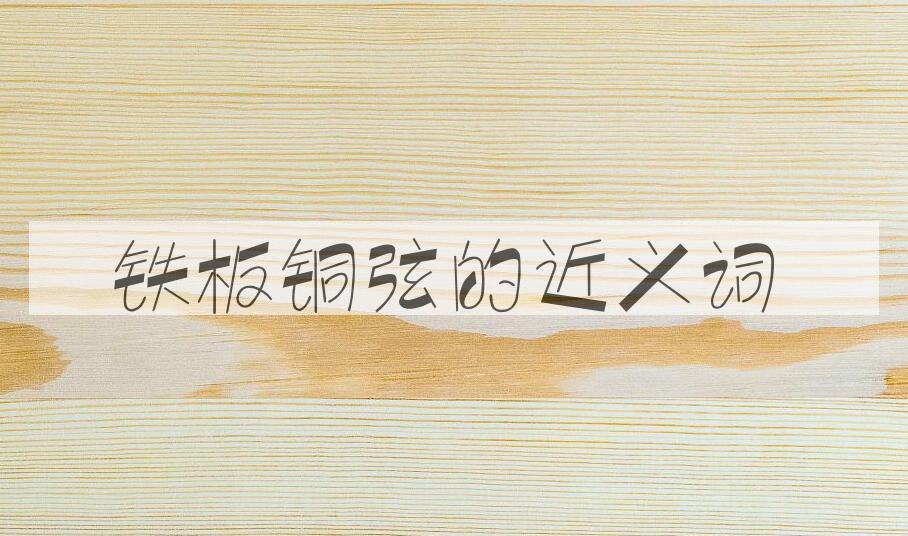 铁板铜弦的近义词